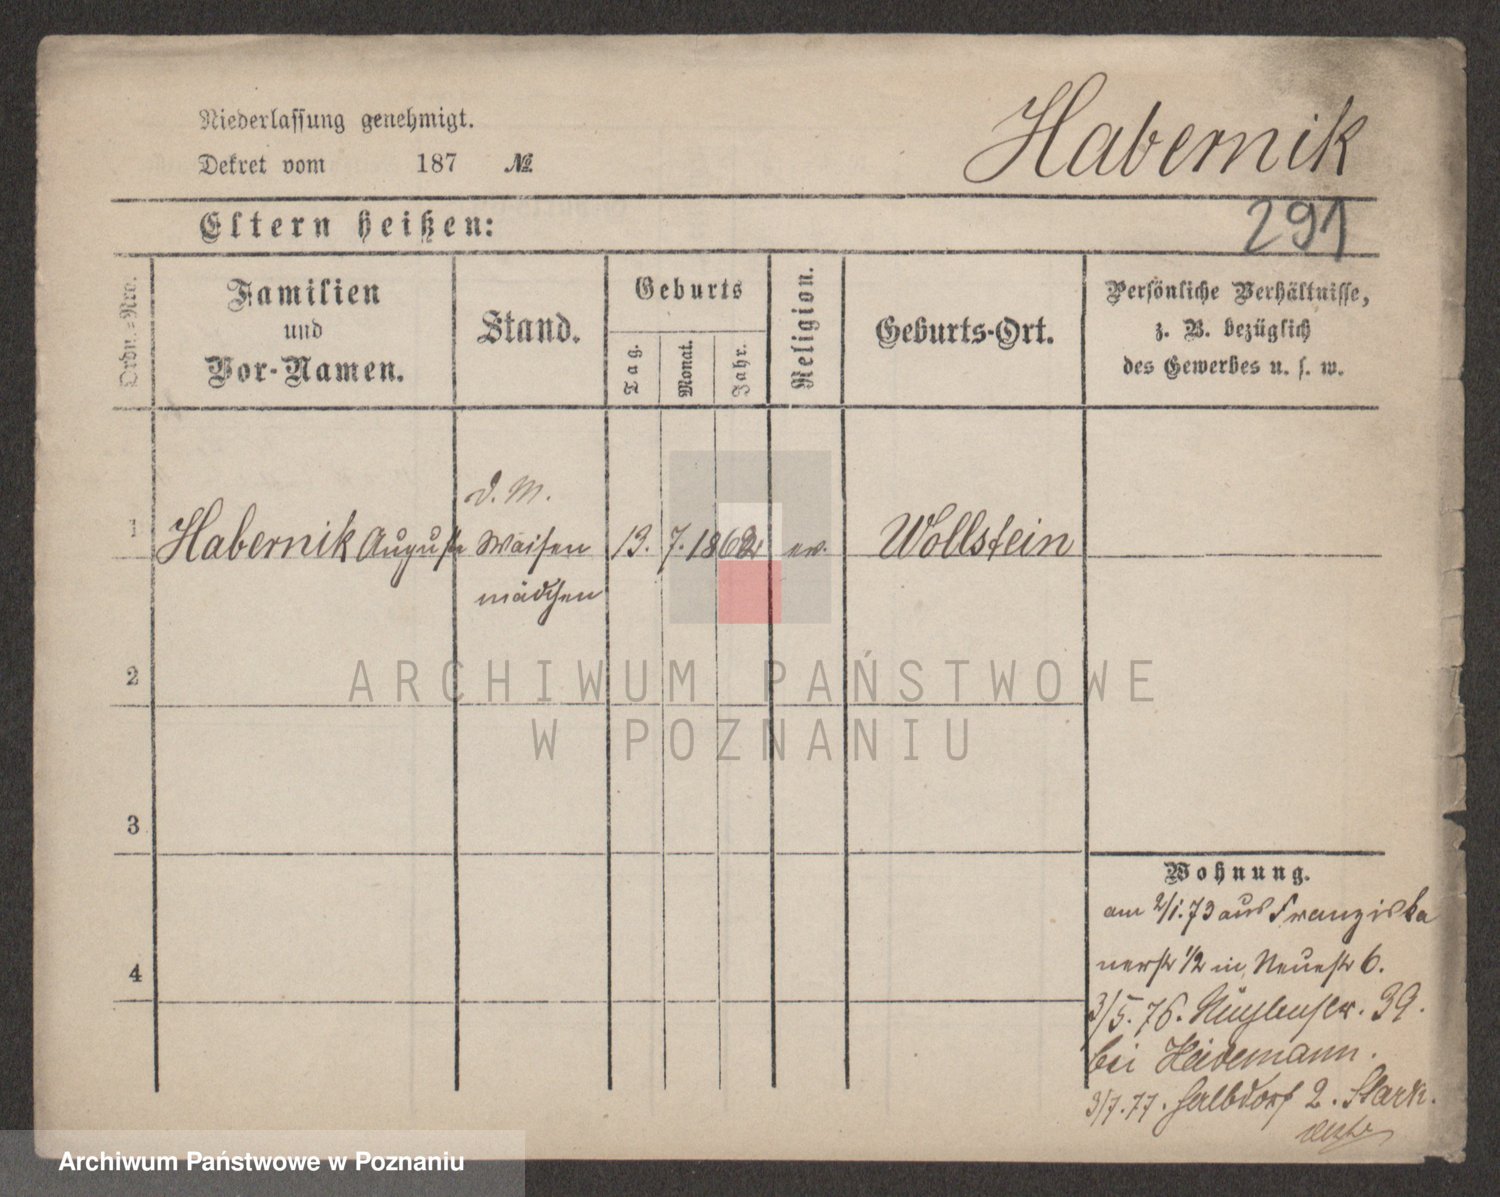 Niederlassung genehmigt.
Dekret vom 187 №
Habernik
291
Eltern heißen:
Ordn.-Nro.
Familien
und
Vor-Namen.
Stand.
Geburts
Tag.
Monat.
Jahr.
Religion.
Geburts-Ort.
Persönliche Verhältnisse,
z. B. bezüglich
des Gewerbes u. s. w.
d. M.
1 Habernik Auguste Waisen 13. 7. 1862 ev. Wollstein
mädchen
2
3
4
Wohnung.
am 2/1. 73 aus Franziska
nerstr 1/2 in Neuestr 6.
3/5. 76. 39.
bei Heidemann.
3/7. 77. Halbdorf 2. Stark.
ARCHIWUM PAŃSTWOWE
W POZNANIU
Archiwum Państwowe w Poznaniu